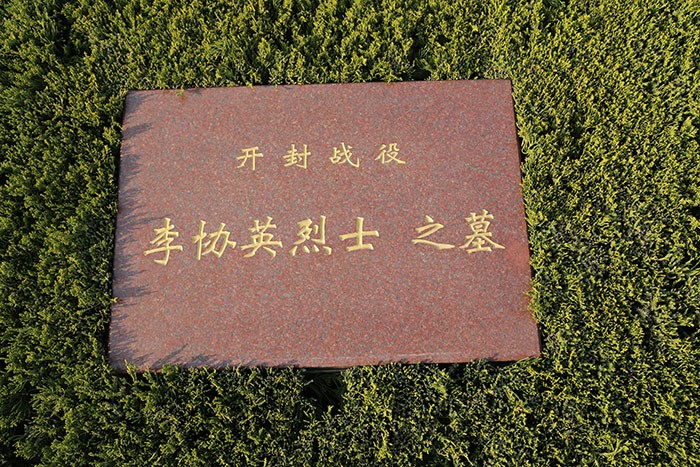 开封战役
李协英烈士 之墓